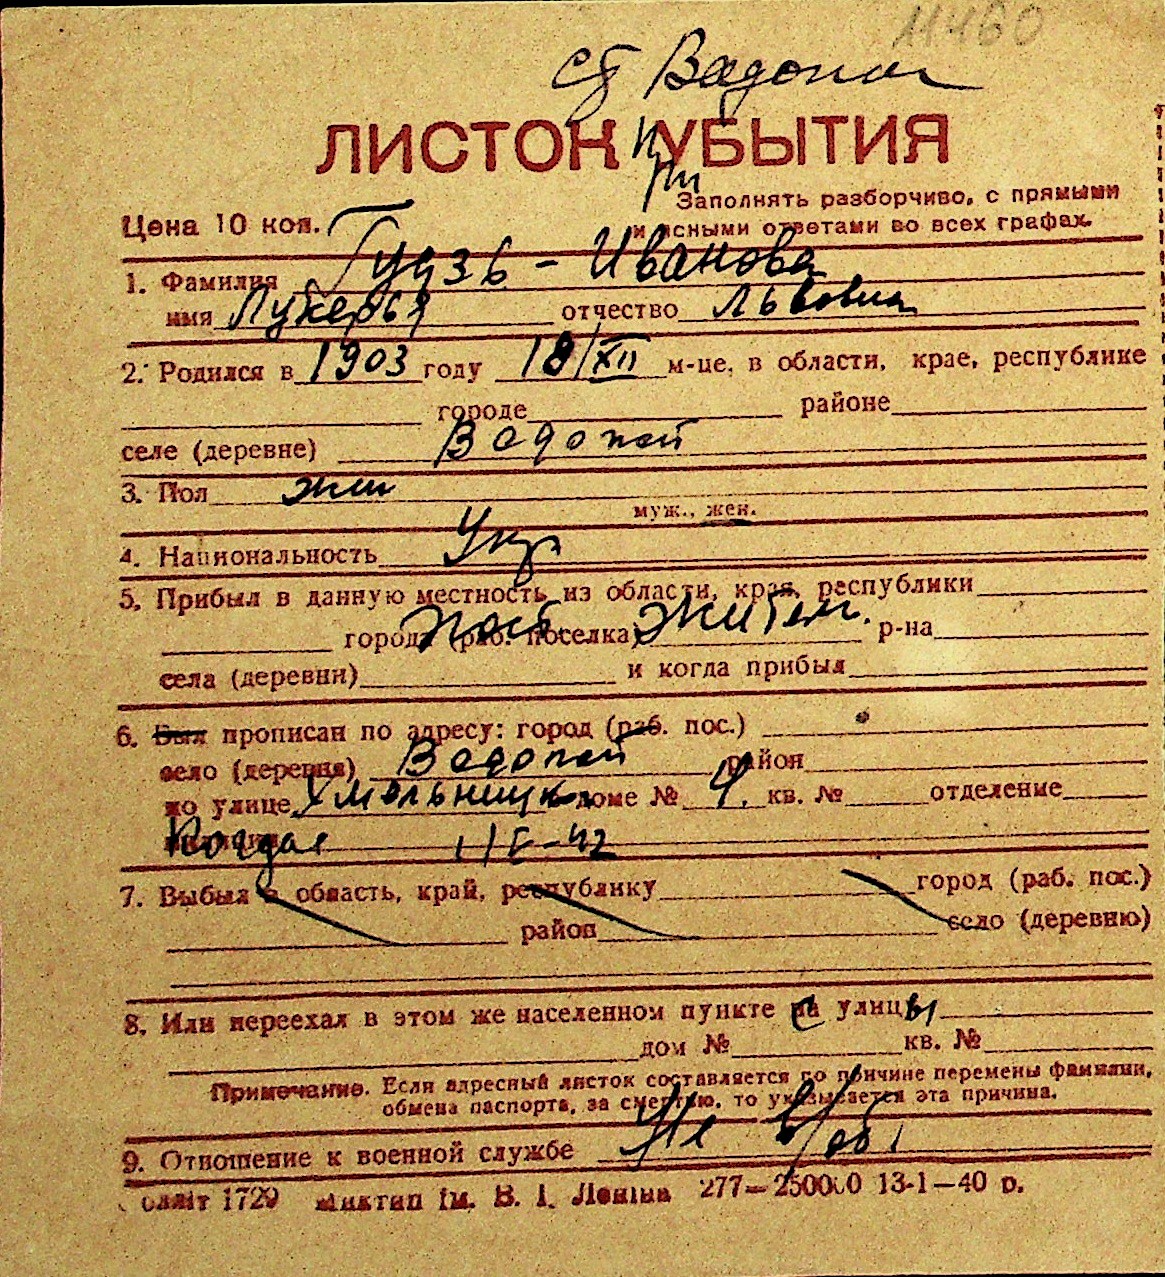 11460
ст Водопой
ЛИСТОК УБЫТИЯ
Заполнять разборчиво, с прямыми
Цена 10 коп. и ясными ответами во всех графах.
1. Фамилия Гудзь - Иванова
имя Лукерья отчество Львовна
2. Родился в 1903 году 18/XII м-це, в области, крае, республике
городе районе
селе (деревне) Водопой
3. Пол жен
муж., жен.
4. Национальность Укр
5. Прибыл в данную местность из области, края, республики
города (раб. поселка) Жител. р-на
села (деревни) и когда прибыл
6. Был прописан по адресу: город (раб. пос.)
село (деревня) Водопой район
по улице Хмельницк доме № 4. кв. № отделение
милиции
7. Выбыл в область, край, республику город (раб. пос.)
район село (деревню)
8. Или переехал в этом же населенном пункте с улицы
дом № кв. №
Примечание. Если адресный листок составляется по причине перемены фамилии,
обмена паспорта, за смертью, то указывается эта причина.
9. Отношение к военной службе Не в/об
1729 ім. В. І. Леніна 277—250000 13-1—40 р.